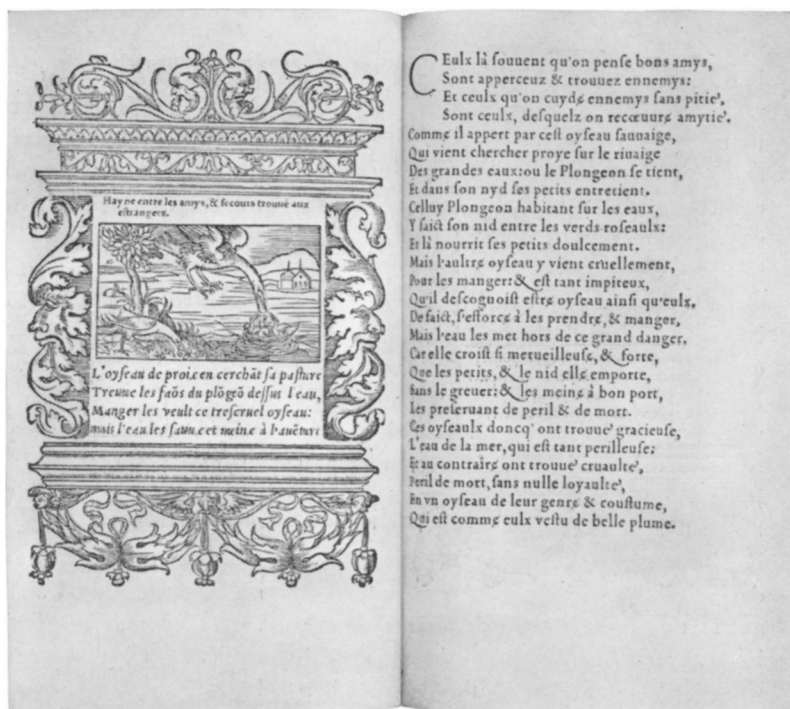 Hayne entre les amys, & secours trouué aux
estrangers.
L'oyseau de proiæ en cerchãt sa pasture
Treuue les faõs du plõgeõ dessut l'eau,
Manger les veult ce trescruel oyseau:
mais l'eau les sauuæ et meinæ à l'auẽture
CEulx là souuent qu'on pense bons amys,
Sont apperceuz & trouuez ennemys:
Et ceulx qu'on cuydę ennemys sans pitie',
Sont ceulx, desquelz on recœuurę amytie'.
Commę il appert par cest oyseau sauuaige,
Qui vient chercher proye sur le riuaige
Des grandes eaux: ou le Plongeon se tient,
Et dans son nyd ses petits entretient.
Celluy Plongeon habitant sur les eaux,
Y faict son nid entre les verds roseaulx:
Et là nourrit ses petits doulcement.
Mais l'aultrę oyseau y vient cruellement,
Pour les manger: & est tant impiteux,
Qu'il descognoist estrę oyseau ainsi qu'eulx.
De faict, s'efforcę à les prendrę, & manger,
Mais l'eau les met hors de ce grand danger.
Car elle croist si merueilleusę, & forte,
Que les petits, & le nid elle emporte,
Sans le greuer: & les meinę à bon port,
Les preseruant de peril & de mort.
Ces oyseaulx doncq' ont trouue' gracieuse,
L'eau de la mer, qui est tant perilleuse:
Et au contrairę ont trouue' cruaulte',
Peril de mort, sans nulle loyaulte',
En vn oyseau de leur genrę & coustume,
Qui est commę eulx vestu de belle plume.